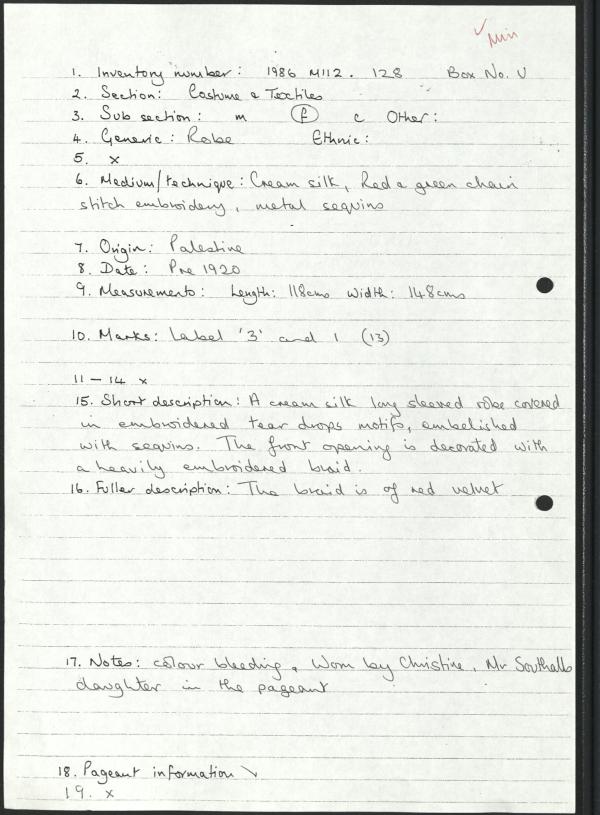 ✓ Min
1. Inventory number: 1986 M112. 128 Box No. V
2. Section: Costume & Textiles
3. Sub section: m f c Other:
4. Generic: Robe Ethnic:
5. x
6. Medium/technique: Cream silk, Red & green chain
stitch embroidery, metal sequins
7. Origin: Palestine
8. Date: Pre 1920
9. Measurements: Length: 118cms Width: 148cms
10. Marks: Label '3' and 1 (13)
11 - 14 x
15. Short description: A cream silk long sleeved robe covered
in embroidered tear drops motifs, embelished
with sequins. The front opening is decorated with
a heavily embroidered braid.
16. Fuller description: The braid is of red velvet
17. Notes: colour bleeding. Worn by Christine, Mr Southalls
daughter in the pageant
18. Pageant information
19. x